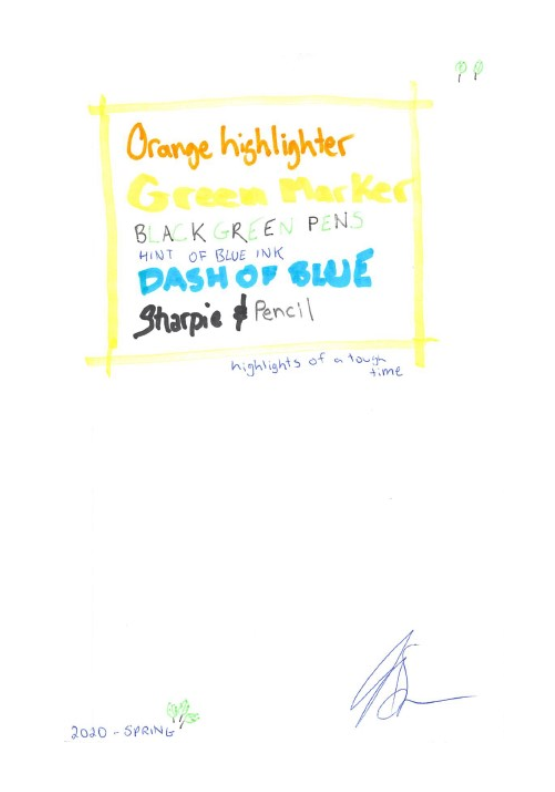 Orange highlighter
Green Marker
BLACK GREEN PENS
HINT OF BLUE INK
DASH OF BLUE
Sharpie & Pencil
highlights of a tough
time
2020 - SPRING